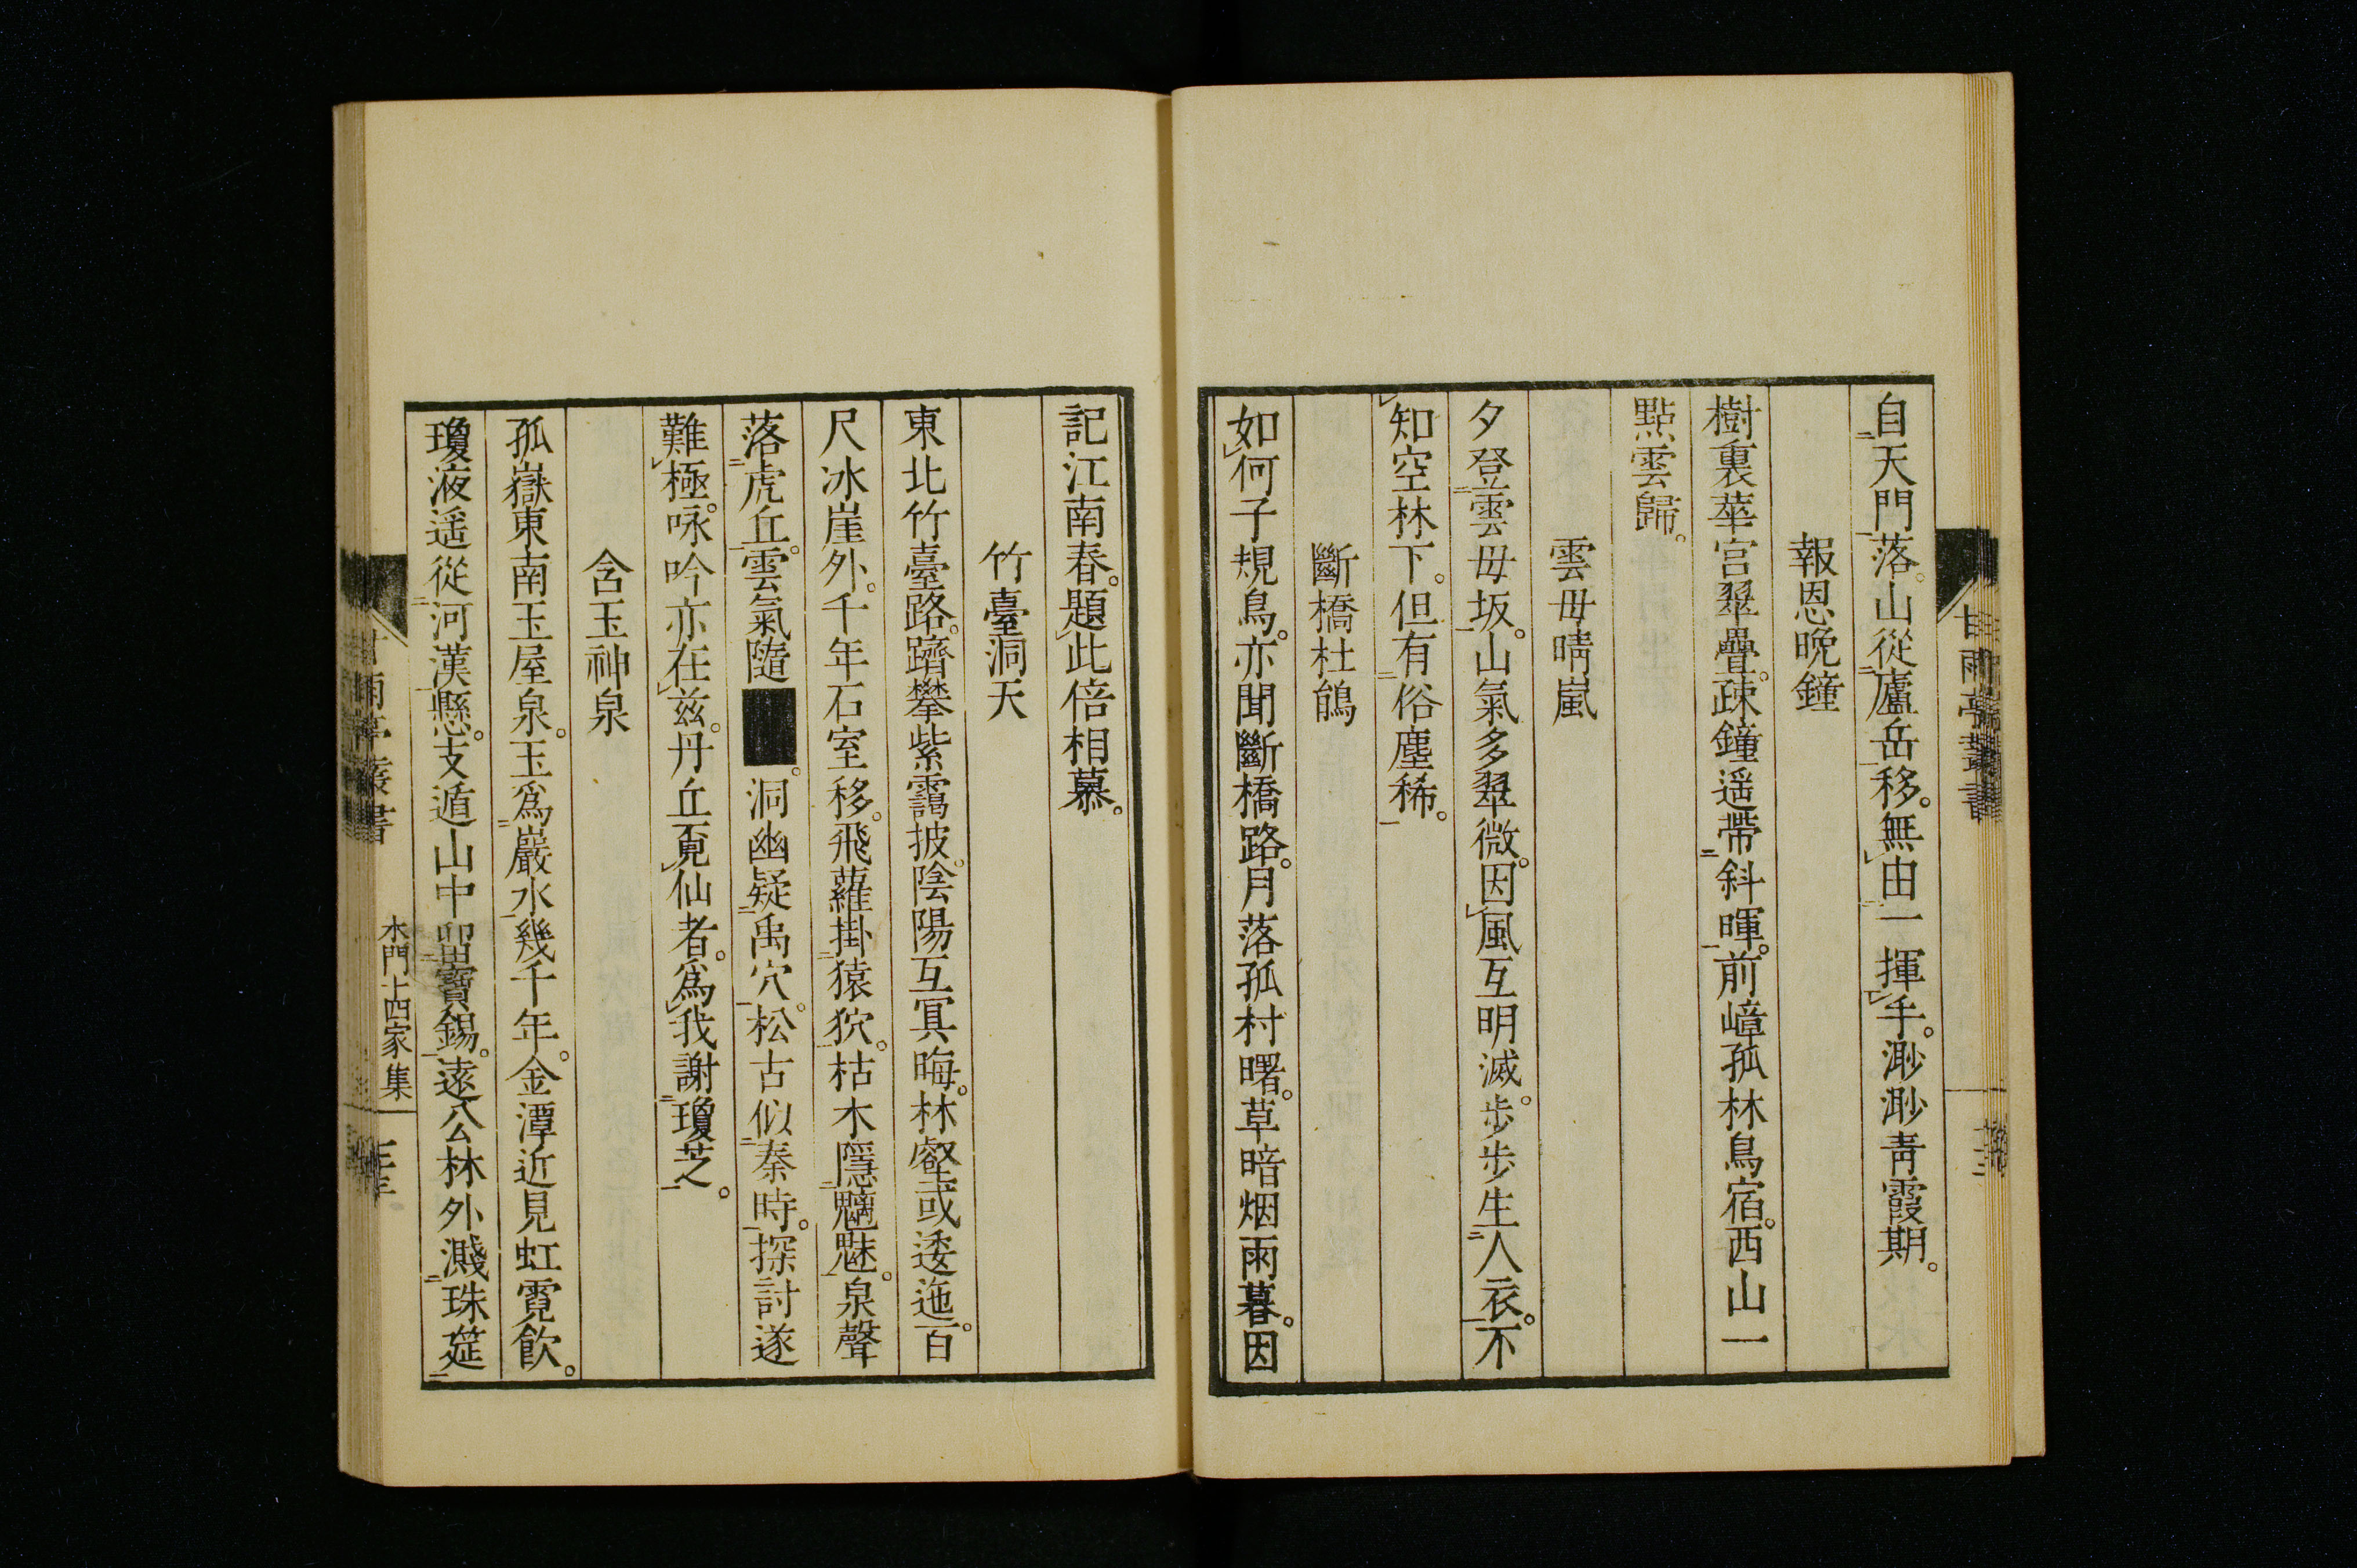 自天門落。山從廬岳移。無由一揮手。渺渺靑霞期。
報恩晩鐘
樹裏華宮翠疊。疎鐘遥帶斜暉。前嶂孤林鳥宿。西山一
點雲歸。
雲毋晴嵐
夕登雲毋坂。山氣多翠微。因風互明滅。步步生人衣。不
知空林下。但有俗塵稀。
斷橋杜鵃
如何子規鳥。亦聞斷橋路。月落孤村曙。草暗烟雨暮。因
甘雨亭叢書
記江南春。題此倍相慕。
竹臺洞天
東北竹臺路。躋攀紫靄披。陰陽互冥晦。林壑或逶迤。百
尺冰崖外。千年石室移。飛蘿掛猿狖。枯木隱魑魅。泉聲
落虎丘。雲氣隨■。洞幽疑禹穴。松古似秦時。探討遂
難極。咏吟亦在兹。丹丘覓仙者。爲我謝瓊芝。
含玉神泉
孤嶽東南玉屋泉。玉爲巖水幾千年。金潭近見虹霓飮。
瓊液遥從河漢懸。支遁山中留寶錫。遠公林外濺珠筵
甘雨亭叢書
木門十四家集